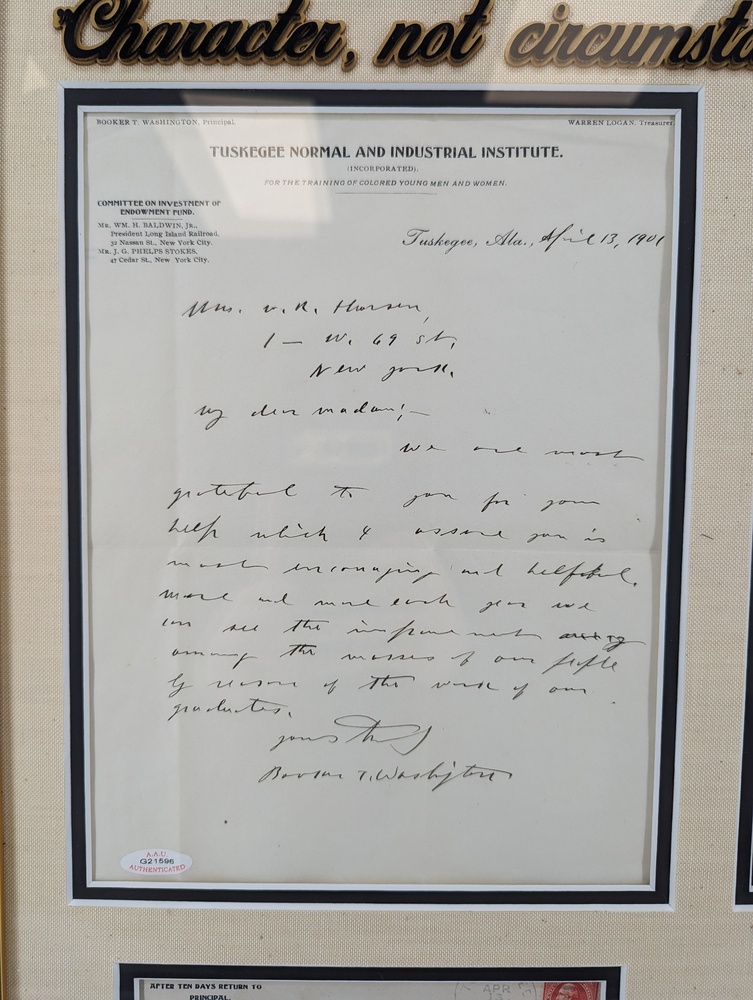 "Character, not circumst
BOOKER T. WASHINGTON, Principal.
WARREN LOGAN, Treasurer
TUSKEGEE NORMAL AND INDUSTRIAL INSTITUTE.
(INCORPORATED).
FOR THE TRAINING OF COLORED YOUNG MEN AND WOMEN.
COMMITTEE ON INVESTMENT OF
ENDOWMENT FUND.
MR. WM. H. BALDWIN, JR.,
President Long Island Railroad,
32 Nassau St., New York City.
MR. J. G. PHELPS STOKES,
47 Cedar St., New York City.
Tuskegee, Ala., April 13, 1901
Mrs.
1 — W. 69 st,
New York.
My dear madam;—
We are most
grateful to you for your
help which I assure you is
most encouraging and helpful.
More and more each year we
can see the improvement
among the masses of our people
by reason of the work of our
graduates.
Yours truly
Booker T. Washington
A.A.U.
G21596
AUTHENTICATED
AFTER TEN DAYS RETURN TO
PRINCIPAL,
APR